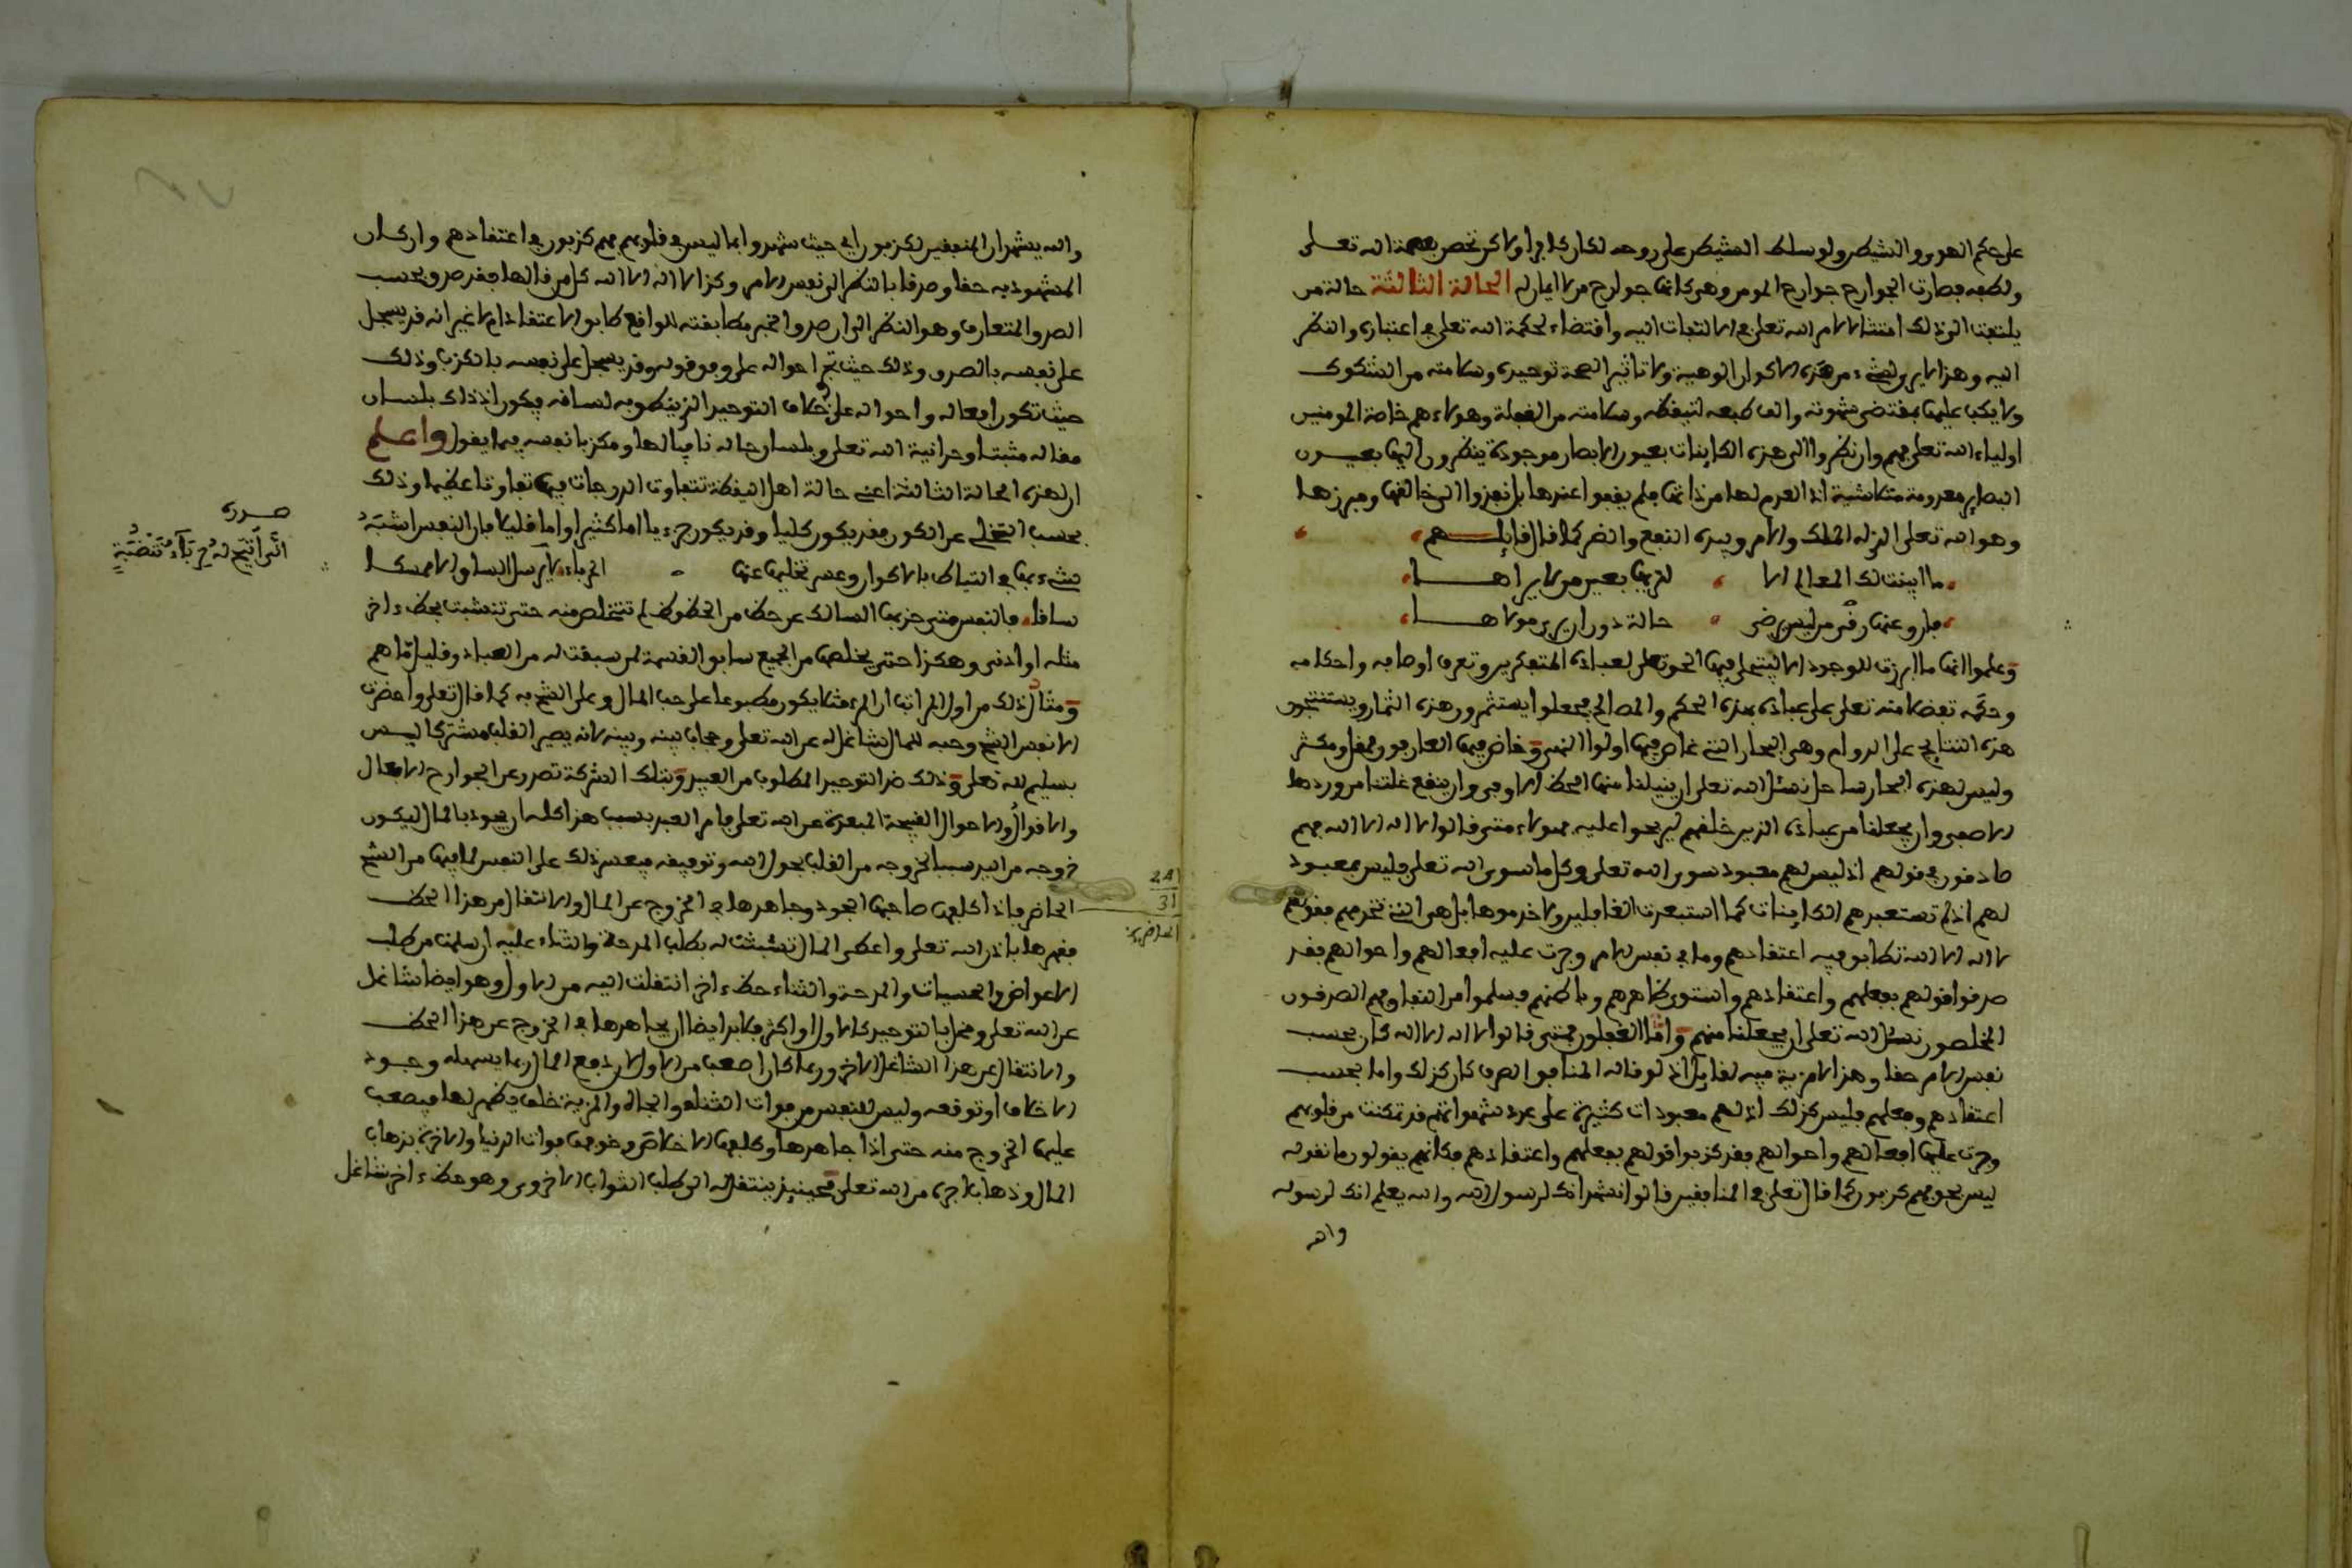 على حكم الهوى والشيطن ولو سلط الشيطن على روحه لكان كافرا ولاكن تحصن بعصمة الله تعلى
ولطفه فصارت الجوارح جوارح المومن وهي كانها جوارح من لا ايمان له الحالة الثالثة حالة من
يلتفت الى ذلك امتثالا لامر الله تعلى في الالتفات اليه واقتضاء لحكمة الله تعلى في اعتباره والنظر
اليه وهذا لا يرى لشيء من هذه الاكوان الوهية ولا تاثيرا لصحة توحيده وسلامته من الشكوك
ولا يكب عليها بمقتضى شهوته والف طبعه لتيقظه وسلامته من الغفلة وهولاء هم خاصة المومنين
اولياء الله تعلى فهم وان نظروا الى هذه الكاينات بعيون الابصار موجودة ينظرون اليها بعيون
البصاير معدومة متلاشية اذ العدم لها من ذاتها فلم يقفوا عندها بل نفذوا الى خالقها ومبرزها
وهو الله تعلى الذي له الملك والامر وبيده النفع والضر كما قال قايلهم
ما ابينت لك المعالم الا لتريها بعين من لا يراها
فارق عنها رقي من ليس يرضى حالة دون ان يرى مولاها
وعلموا انها ما ابرزت للوجود الا ليتجلى فيها الحق تعلى لعباده المتفكرين وتعرف اوصافه واحكامه
وحكمه تفضلا منه تعلى على عباده بهذه الحكم والمصالح فجعلوا يستثمرون هذه الثمار ويستنتجون
هذه النتايج على الدوام وهي البحار التي غاص فيها اولوا النهى وخاض فيها العارفون فمقل ومكثر
وليس لهذه البحار ساحل نسئل الله تعلى ان ينيلنا منها الحظ الاوفى وان ينقع غلتنا من وردها
الاصفى وان يجعلنا من عباده الذين خلقهم ليربحوا عليه فهولاء متى قالوا لا اله الا الله فهم
صادقون في قولهم اذ ليس لهم معبود سوى الله تعلى وكل ما سوى الله تعلى فليس بمعبود
لهم اذ لم تستعبدهم الكاينات كما استعبدت الغافلين ولا خدموها بل هي التي تخدمهم فقولهم
لا اله الا الله تطابق فيه اعتقادهم وما في نفس الامر وجرت عليه افعالهم واحوالهم فقد
صدقوا قولهم بفعلهم واعتقادهم واستوى ظاهرهم وباطنهم فسلموا من النفاق فهم الصدقون
المخلصون نسئل الله تعلى ان يجعلنا منهم واما الغفلون فمتى قالوا لا اله الا الله كان بحسب
نفس الامر حقا وهذا لا مزية فيه لقايل اذ لو قاله المنافق الصرف كان كذلك واما بحسب
اعتقادهم وفعلهم فليس كذلك اذ لهم معبودات كثيرة على عدد شهواتهم قد تمكنت من قلوبهم
وجرت عليها افعالهم واحوالهم فقد كذبوا قولهم بفعلهم واعتقادهم فكانهم يقولون ما نقوله
ليس بحق فهم كذبون كما قال تعلى في المنافقين قالوا نشهد انك لرسول الله والله يعلم انك لرسوله
والله
والله يشهد ان المنفقين لكذبون اي حيث شهدوا بما ليس في قلوبهم فهم كذبون في اعتقادهم وان كان
المشهود به حقا وصدقا بالنظر الى نفس الامر وكذا لا اله الا الله كل من قالها فقد صدق بحسب
الصدق المتعارف وهو النظر الى ان صدق الخبر مطابقته للواقع طابق الاعتقاد ام لا غير انه قد يسجل
على نفسه بالصدق وذلك حيث تجري احواله على وفق قوله وقد يسجل على نفسه بالكذب وذلك
حيث تكون افعاله واحواله على خلاف التوحيد الذي ينطق به لسانه فيكون اذ ذاك بلسان
مقاله مثبتا وحدانية الله تعلى وبلسان حاله نافيا لها ومكذبا نفسه فيما يقول واعلم
ان هذه الحالة الثالثة اعني حالة اهل اليقظة تتفاوت الدرجات فيها تفاوتا عظيما وذلك
بحسب التخلي عن الكون فقد يكون كليا وقد يكون جزءيا اما كثيرا واما قليلا فان النفس اشبه
شيء بها في التياطها بالاكوان وعسر تخليها عنها الحرباء لا يرسل الساق الا ممسكا
صدره
انى اتيح له حرباء تنضبة
ساقا فالنفس متى جذبها السالك عن حظ من الحظوظ لم تتخلص منه حتى تتشبث بحظ ءاخر
مثله او ادنى وهكذا حتى يخلصها من الجميع سابق القسمة لمن سبقت له من العباد وقليل ما هم
ومثال ذلك من اول المراتب ان المرء مثلا يكون مطبوعا على حب المال وعلى الشح به كما قال تعلى واحضرت
الانفس الشح وحبه للمال شاغل له عن الله تعلى وحجاب بينه وبينه لانه يصير القلب مشتركا ليس
بسليم لله تعلى وذلك ضد التوحيد المطلوب من العبد وبتلك الشركة تصدر عن الجوارح الافعال
والاقوال والاحوال القبيحة المبعدة عن الله تعلى فامر العبد بسبب هذا كله ان يجود بالمال ليكون
خروجه من اليد سببا لخروجه من القلب بحول الله وتوفيقه فيعسر ذلك على النفس لما فيها من الشح
الحاضر فاذا كلفها صاحبها الجود وجاهدها في الخروج عن المال والانتقال من هذا الحظ
241
31
الحاضر
فقهرها باذن الله تعلى واعطى المال تشبثت له بطلب المدحة والثناء عليه ان سلمت من طلب
الاعواض الحسيات والمدحة والثناء حظ ءاخر انتقلت اليه من الاول وهو ايضا شاغل
عن الله تعلى ومخل بالتوحيد كالاول او اكثر فلا بد ايضا ان يجاهدها في الخروج عن هذا الحظ
والانتقال عن هذا الشاغل الاخر وربما كان اصعب من الاول لان دفع المال ربما يسهله وجود
الاخلاف او توقعه وليس للنفس من فوات الثناء والجاه والمزية خلف يظهر لها فيصعب
عليها الخروج منه حتى اذا جاهدها وكلفها الاخلاص وخوفها فوات الدنيا والاخرة بذهاب
المال وذهاب الاجر من الله تعلى فحينئذ ينتقل الى طلب الثواب الاخروي وهو حظ ءاخر شاغل